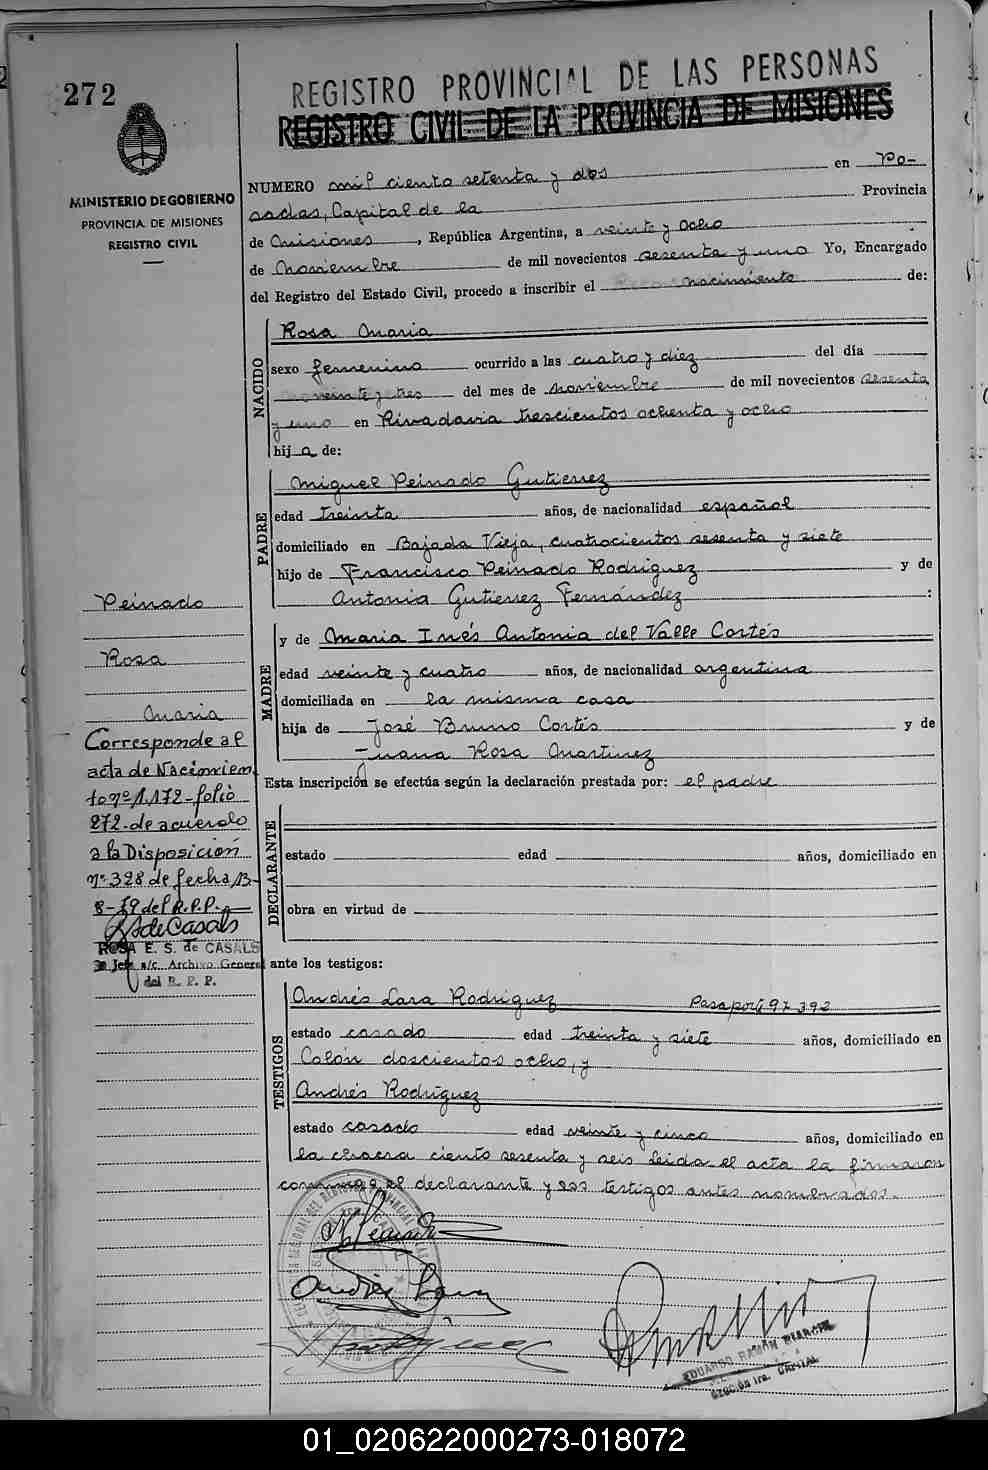 272
REGISTRO PROVINCIAL DE LAS PERSONAS
REGISTRO CIVIL DE LA PROVINCIA DE MISIONES
MINISTERIO DE GOBIERNO
PROVINCIA DE MISIONES
REGISTRO CIVIL
NUMERO mil ciento setenta y dos en Po-
sadas, Capital de la Provincia
de Misiones, República Argentina, a veinte y ocho
de Noviembre de mil novecientos sesenta y uno Yo, Encargado
del Registro del Estado Civil, procedo a inscribir el nacimiento de:
NACIDO
Rosa Maria
sexo femenino ocurrido a las cuatro y diez del día
veinte y tres del mes de noviembre de mil novecientos sesenta
y uno en Rivadavia trescientos ochenta y ocho
hija de:
PADRE
Miguel Peinado Gutierrez
edad treinta años, de nacionalidad español
domiciliado en Bajada Vieja, cuatrocientos sesenta y siete
hijo de Francisco Peinado Rodriguez y de
Antonia Gutierrez Fernández :
MADRE
y de Maria Inés Antonia del Valle Cortés
edad veinte y cuatro años, de nacionalidad argentina
domiciliada en la misma casa
hija de José Bruno Cortés y de
Juana Rosa Martinez
Esta inscripción se efectúa según la declaración prestada por: el padre
DECLARANTE
estado edad años, domiciliado en
obra en virtud de
ante los testigos:
TESTIGOS
Andrés Lara Rodriguez Pasaporte 97392
estado casado edad treinta y siete años, domiciliado en
Colón doscientos ocho, y
Andrés Rodríguez
estado casado edad veinte y cinco años, domiciliado en
la chacra ciento sesenta y seis leida el acta la firmaron
conmigo el declarante y los testigos antes nombrados.
Peinado
Rosa
Maria
Corresponde al
acta de Nacimien
to nº 1.172 - folio
272 - de acuerdo
a la Disposición
nº 328 de fecha 13-
8-79 del R.P.P.
ROSA E. S. de CASALS
Jefe a/c. Archivo General
del R. P. P.
EDUARDO RAMÓN BIANCHI
SECCIÓN 1ra. CAPITAL
01_020622000273-018072